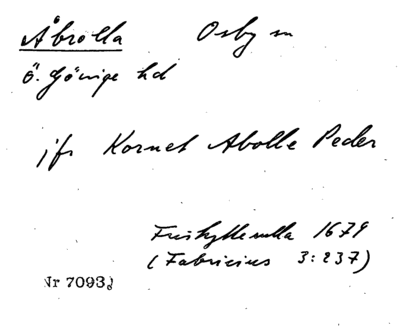 Åbrolla Osby sn
Ö. Göinge hd
jfr Kornet Abolle Peder
1679
(Fabricius 3:237)
Nr 7093